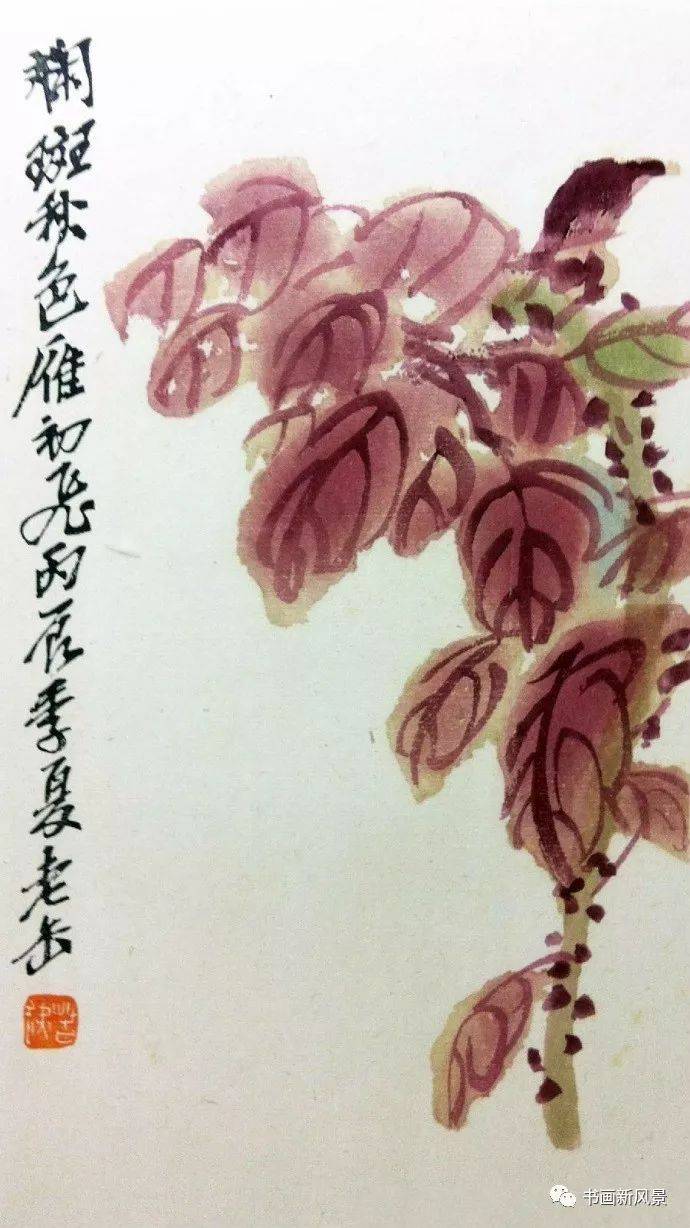 斓斑秋色雁初飞丙辰季夏老缶
苦铁
书画新风景